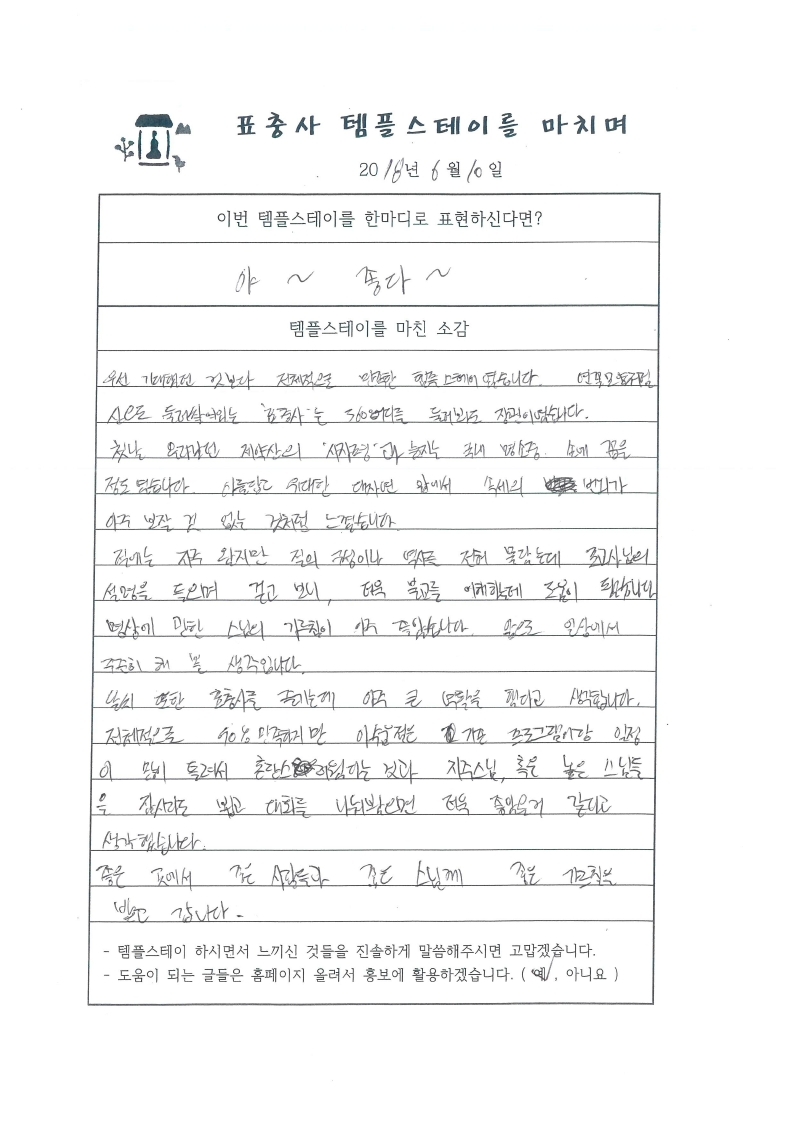 표충사 템플스테이를 마치며
2018년 6월 10일
이번 템플스테이를 한마디로 표현하신다면?
야 ~ 좋다 ~
템플스테이를 마친 소감
우선 기대했던 것보다 전체적으로 만족한 템플스테이였습니다. 연꽃모양처럼
산으로 둘러쌓여있는 '표충사'는 360°어디를 둘러봐도 장관이였습니다.
첫날 올라갔던 재약산의 '사자평'과 늪지는 국내 명소중 손에 꼽을
정도였습니다. 아름답고 위대한 대자연 앞에서 속세의 번뇌가
아주 보잘 것 없는 것처럼 느꼈습니다.
절에는 자주 왔지만 절의 구성이나 역사는 전혀 몰랐는데 포교사님의
설명을 들으며 걷고 보니, 더욱 불교를 이해하는데 도움이 되었습니다
명상에 관한 스님의 가르침이 아주 좋았습니다. 앞으로 일상에서
꾸준히 해 볼 생각입니다.
날씨 또한 표충사를 즐기는데 아주 큰 역할을 했다고 생각합니다.
전체적으로 90% 만족하지만 아쉬운점은 기존 프로그램이랑 일정
이 많이 틀려서 혼란스러워하는 것과 지주스님, 혹은 높은 스님들
을 잠시라도 뵙고 대화를 나눠봤으면 더욱 좋았을거 같다고
생각했습니다.
좋은 곳에서 좋은 사람들과 좋은 스님께 좋은 가르침을
받고 갑니다.
- 템플스테이 하시면서 느끼신 것들을 진솔하게 말씀해주시면 고맙겠습니다.
- 도움이 되는 글들은 홈페이지 올려서 홍보에 활용하겠습니다. ( 예 , 아니요 )